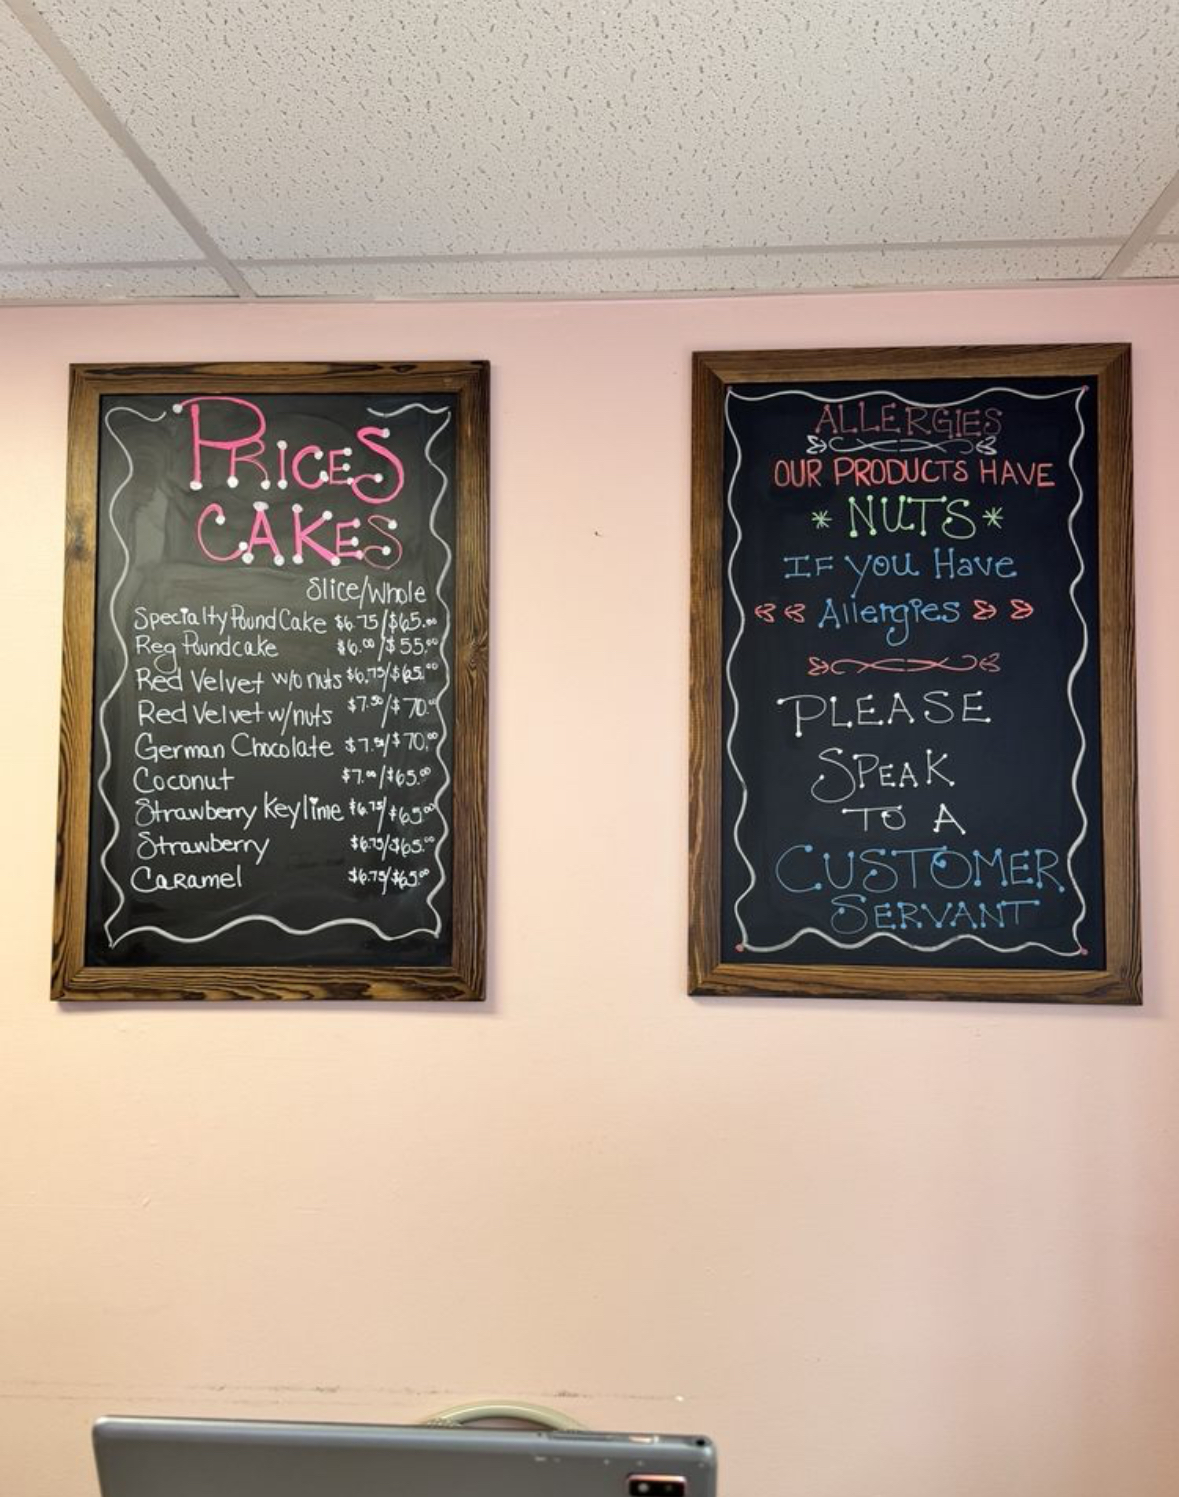 PRICES
CAKES
Slice/Whole
Specialty Pound Cake $6.75/$65.00
Reg Poundcake $6.00/$55.00
Red Velvet w/o nuts $6.75/$65.00
Red Velvet w/nuts $7.50/$70.00
German Chocolate $7.50/$70.00
Coconut $7.00/$65.00
Strawberry Keylime $6.75/$65.00
Strawberry $6.75/$65.00
Caramel $6.75/$65.00
ALLERGIES
OUR PRODUCTS HAVE
* NUTS *
IF you Have
Allergies
PLEASE
SPEAK
TO A
CUSTOMER
SERVANT